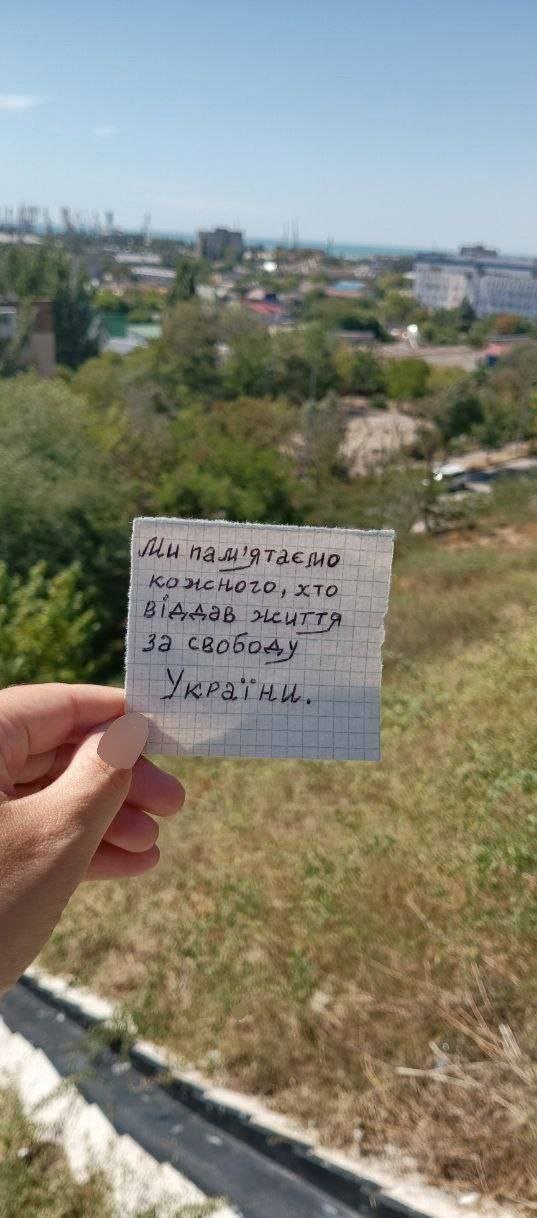 Ми пам'ятаємо
кожного, хто
віддав життя
за свободу
України.